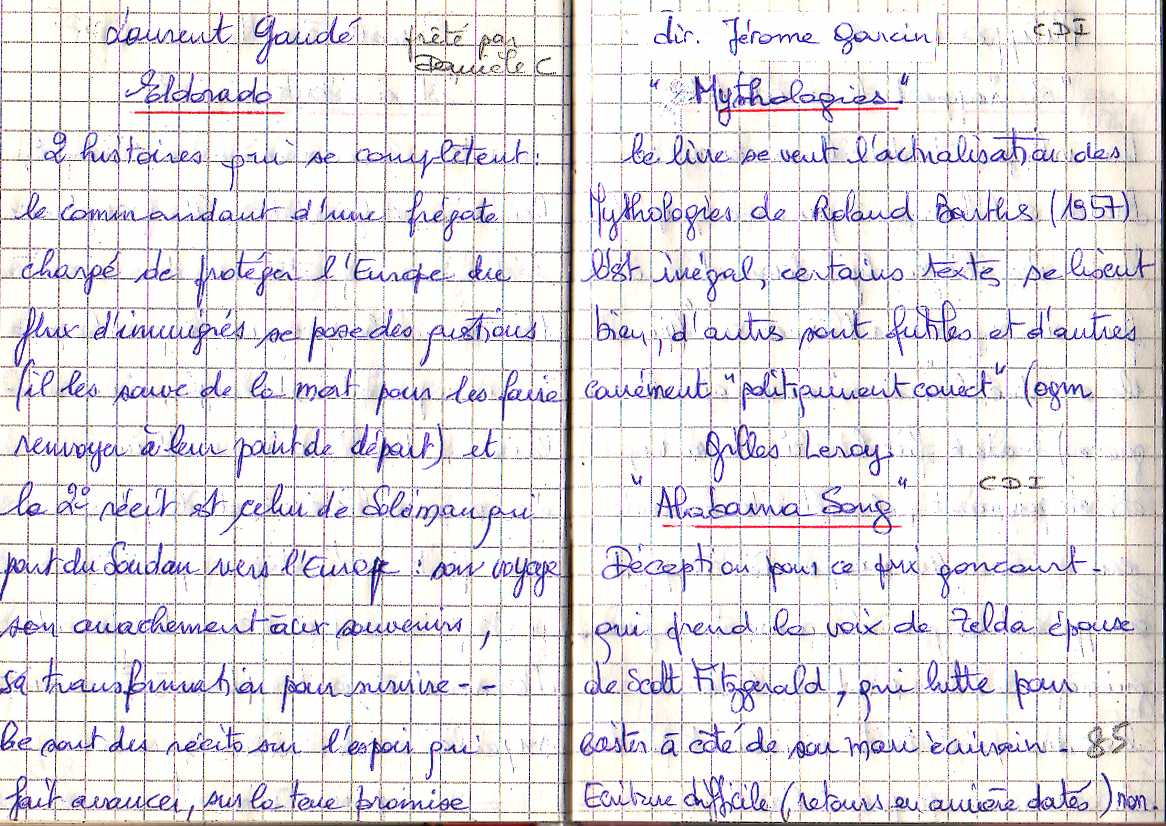 Laurent Gaudé prêté par
Danièle C
Eldorado
2 histoires qui se complètent :
le commandant d'une frégate
chargé de protéger l'Europe du
flux d'immigrés se pose des questions
(il les sauve de la mort pour les faire
renvoyer à leur point de départ) et
le 2e récit est celui de Soleiman qui
part du Soudan vers l'Europe : son voyage
son arrachement à ses souvenirs,
sa transformation pour survivre - -
Ce sont des récits sur l'espoir qui
fait avancer, sur la terre promise
dir. Jérome Garcin CDI
"Mythologies"
Ce livre se veut l'actualisation des
Mythologies de Roland Barthes (1957)
C'est inégal, certains textes se lisent
bien, d'autres sont futiles et d'autres
carrément "politiquement correct" (ogm
Gilles Leroy
"Alabama Song" CDI
Déception pour ce prix goncourt -
qui prend la voix de Zelda épouse
de Scott Fitzgerald, qui lutte pour
exister à côté de son mari écrivain - 85
Ecriture difficile (retours en arrière datés) non.